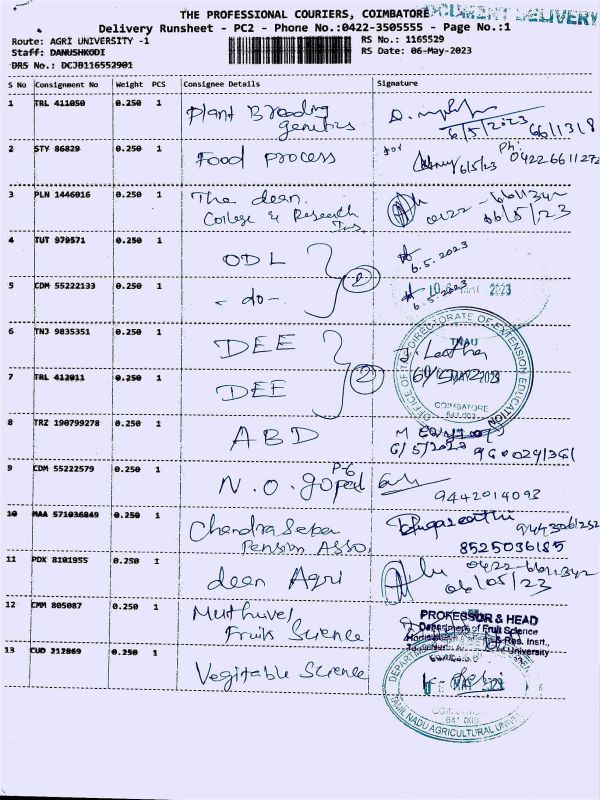 THE PROFESSIONAL COURIERS, COIMBATORE
DOCUMENT DELIVERY
Delivery Runsheet - PC2 - Phone No.:0422-3505555 - Page No.:1
Route: AGRI UNIVERSITY -1
RS No.: 1165529
Staff: DANUSHKODI
RS Date: 06-May-2023
DRS No.: DCJB116552901
S No Consignment No Weight PCS Consignee Details Signature
1 TRL 411050 0.250 1 Plant Breeding
genetics
6/5/2023 6611318
2 STY 86829 0.250 1 Food process
for 6/5/23 Ph: 04226611272
3 PLN 1446016 0.250 1 The dean.
College & Research Ins,
0422-6611342
06/5/23
4 TUT 979571 0.250 1 ODL
6.5.2023
5 CDM 55222133 0.250 1 -do- 2
6.5.2023 MAY 2023
6 TNJ 9835351 0.250 1 DEE
OFFICE OF THE DIRECTORATE OF EXTENSION EDUCATION
TNAU
7 TRL 412011 0.250 1 DEE 2
MAY 2023
COIMBATORE
641 003
8 TRZ 190799278 0.250 1 ABD
6/5/2023
9 CDM 55222579 0.250 1 P-6
N.O. gopal
9442014093
10 MAA 571036849 0.250 1 Chandra Seker
Pension Asso,
8525036185
11 PDK 8101955 0.250 1 dean Agri
0422-6611342
06/05/23
12 CMM 805087 0.250 1 Muthuvel
Fruits Science
PROFESSOR & HEAD
Department of Fruit Science
& Res. Instt.,
University
13 CUD 212869 0.250 1 Vegitable Science
MAY 2023
641 003
TAMIL NADU AGRICULTURAL